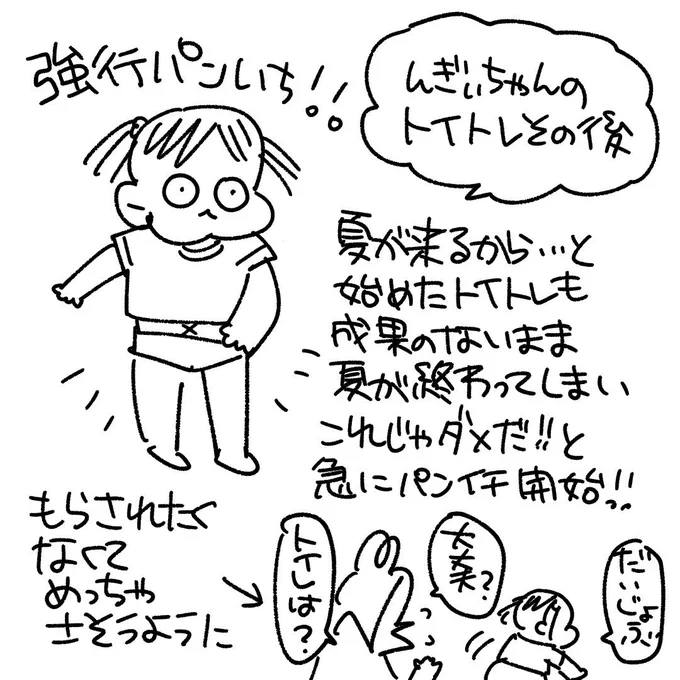 強行パンいち!!
んぎぃちゃんの
トイトレその後
夏が来るから…と
始めたトイトレも
成果のないまま
夏が終わってしまい
これじゃダメだ!!と
急にパンイチ開始!!
もらされたく
なくて
めっちゃ
さそうように
トイレは?
大丈夫?
だいじょぶ